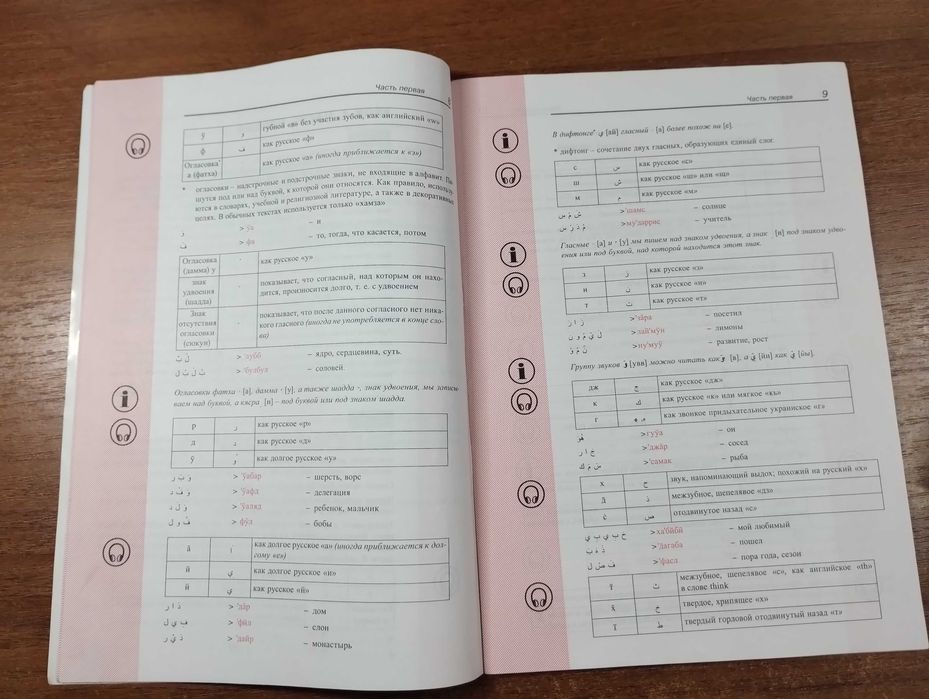 Часть первая
ў و губной «в» без участия зубов, как английский «w»
ф ف как русское «ф»
Огласовка* а (фатха) как русское «а» (иногда приближается к «э»)
* огласовки – надстрочные и подстрочные знаки, не входящие в алфавит. Пи-
шутся под или над буквой, к которой они относятся. Как правило, использу-
ются в словарях, учебной и религиозной литературе, а также в декоративных
целях. В обычных текстах используется только «хамза»
> ўа – и
ف > фа – то, тогда, что касается, потом
Огласовка (дамма) у как русское «у»
знак удвоения (шадда) показывает, что согласный, над которым он нахо-
дится, произносится долго, т. е. с удвоением
Знак отсутствия огласовки (сюкун) показывает, что после данного согласного нет ника-
кого гласного (иногда не употребляется в конце сло-
ва)
> 'лубб – ядро, сердцевина, суть.
> 'булбул – соловей.
Огласовки фатха [а], дамма [у], а также шадда -, знак удвоения, мы записы-
ваем над буквой, а кясра [и] – под буквой или под знаком шадда.
р ر как русское «р»
д د как русское «д»
ӯ و как долгое русское «у»
و ب ر > 'ўабар – шерсть, ворс
و ف د > 'ўафд – делегация
و ل د > 'ўаляд – ребенок, мальчик
ف و ل > фӯл – бобы
ā ا как долгое русское «а» (иногда приближается к дол-
гому «е»)
ӣ ي как долгое русское «и»
й ي как русское «й»
د ا ر > 'дāр – дом
ف ي ل > 'фӣл – слон
د ي ر > 'дайр – монастырь
Часть первая 9
В дифтонге* ي [ай] гласный [а] более похож на [е].
* дифтонг – сочетание двух гласных, образующих единый слог.
с س как русское «с»
ш ش как русское «ш» или «щ»
м م как русское «м»
ش م س >'шамс – солнце
م د ر س >му'даррис – учитель
Гласные [а] и [у] мы пишем над знаком удвоения, а знак [и] под знаком удво-
ения или под буквой, над которой находится этот знак.
з ز как русское «з»
н ن как русское «н»
т ت как русское «т»
ز ا ر >'зāра – посетил
ل ي م و ن >лай'мӯн – лимоны
ن م و >ну'муў – развитие, рост
Группу звуков [увв] можно читать как [в], а [йи] как [йы].
дж ج как русское «дж»
к ك как русское «к» или мягкое «кь»
г ه как звонкое придыхательное украинское «г»
هو >гуўа – он
ج ا ر >'джāр – сосед
س م ك >'самак – рыба
х ح звук, напоминающий выдох; похожий на русский «х»
ذ межзубное, шепелявое «дз»
ص отодвинутое назад «с»
ح ب ي ب ي >ха'бӣбӣ – мой любимый
ذ ه ب – пошел
ف ص ل >'фасл – пора года, сезон
ث межзубное, шепелявое «с», как английское «th»
в слове think
خ твердое, хрипящее «х»
ط твердый горловой отодвинутый назад «т»